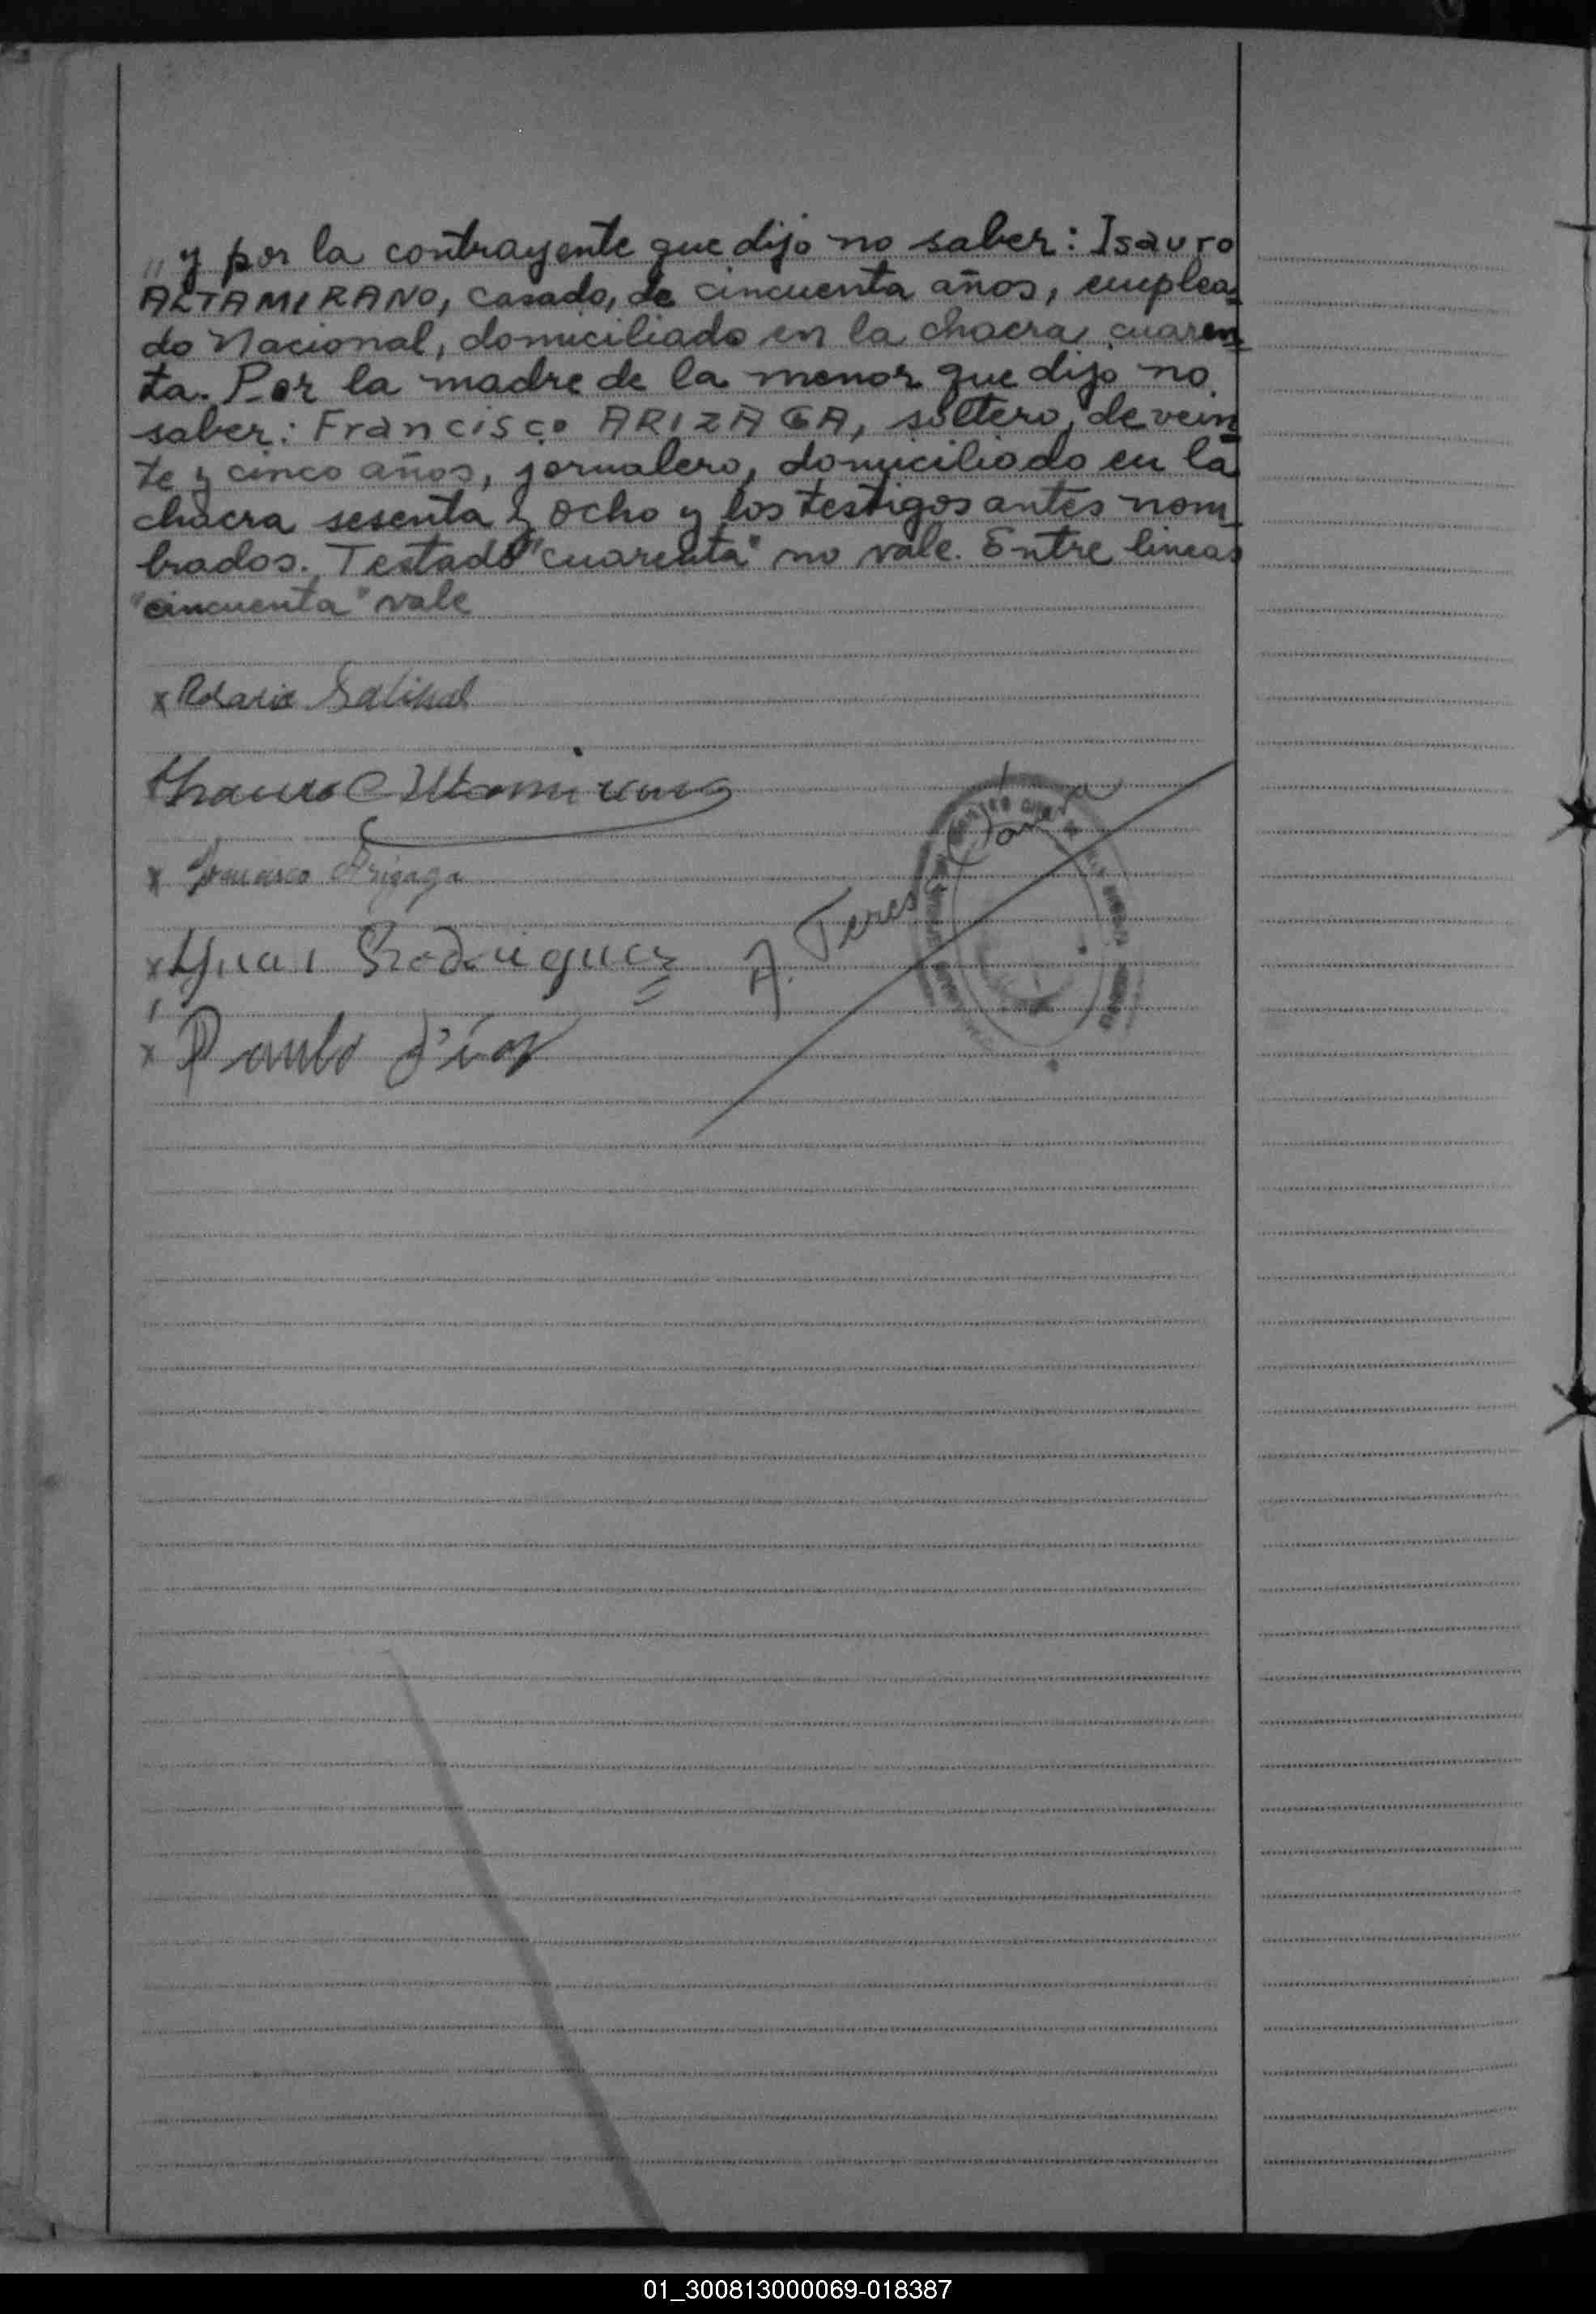 „ y por la contrayente que dijo no saber: Isauro
ALTAMIRANO, casado, de cincuenta años, emplea-
do Nacional, domiciliado en la chacra cuaren
ta. Por la madre de la menor que dijo no
saber: Francisco ARIZAGA, soltero, de vein
te y cinco años, jornalero, domiciliado en la
chacra sesenta y ocho y los testigos antes nom
brados. Testado "cuarenta" no vale. Entre lineas
"cincuenta" vale
x Rosario
x Francisco Arizaga
x Rodriguez
A.
x Diaz
01_300813000069-018387